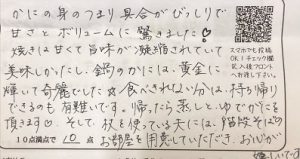 かにの身のつまり具合がびっしりで
甘さとボリュームに驚きました♡
焼きは甘くて旨味が凝縮されていて
美味しかったし、鍋のかには、黄金に
輝いて綺麗でした☆食べきれない分は、持ち帰り
できるのも有難いです。帰ったら蒸しと、ゆでがにを
頂きます♡。そして、杖を使っている夫には、階段そばの
10点満点で 10 点 お部屋を用意していただき、おしが
嬉しいです
スマホでも投稿
OK!チェック欄
記入後フロント
へお渡し下さい。